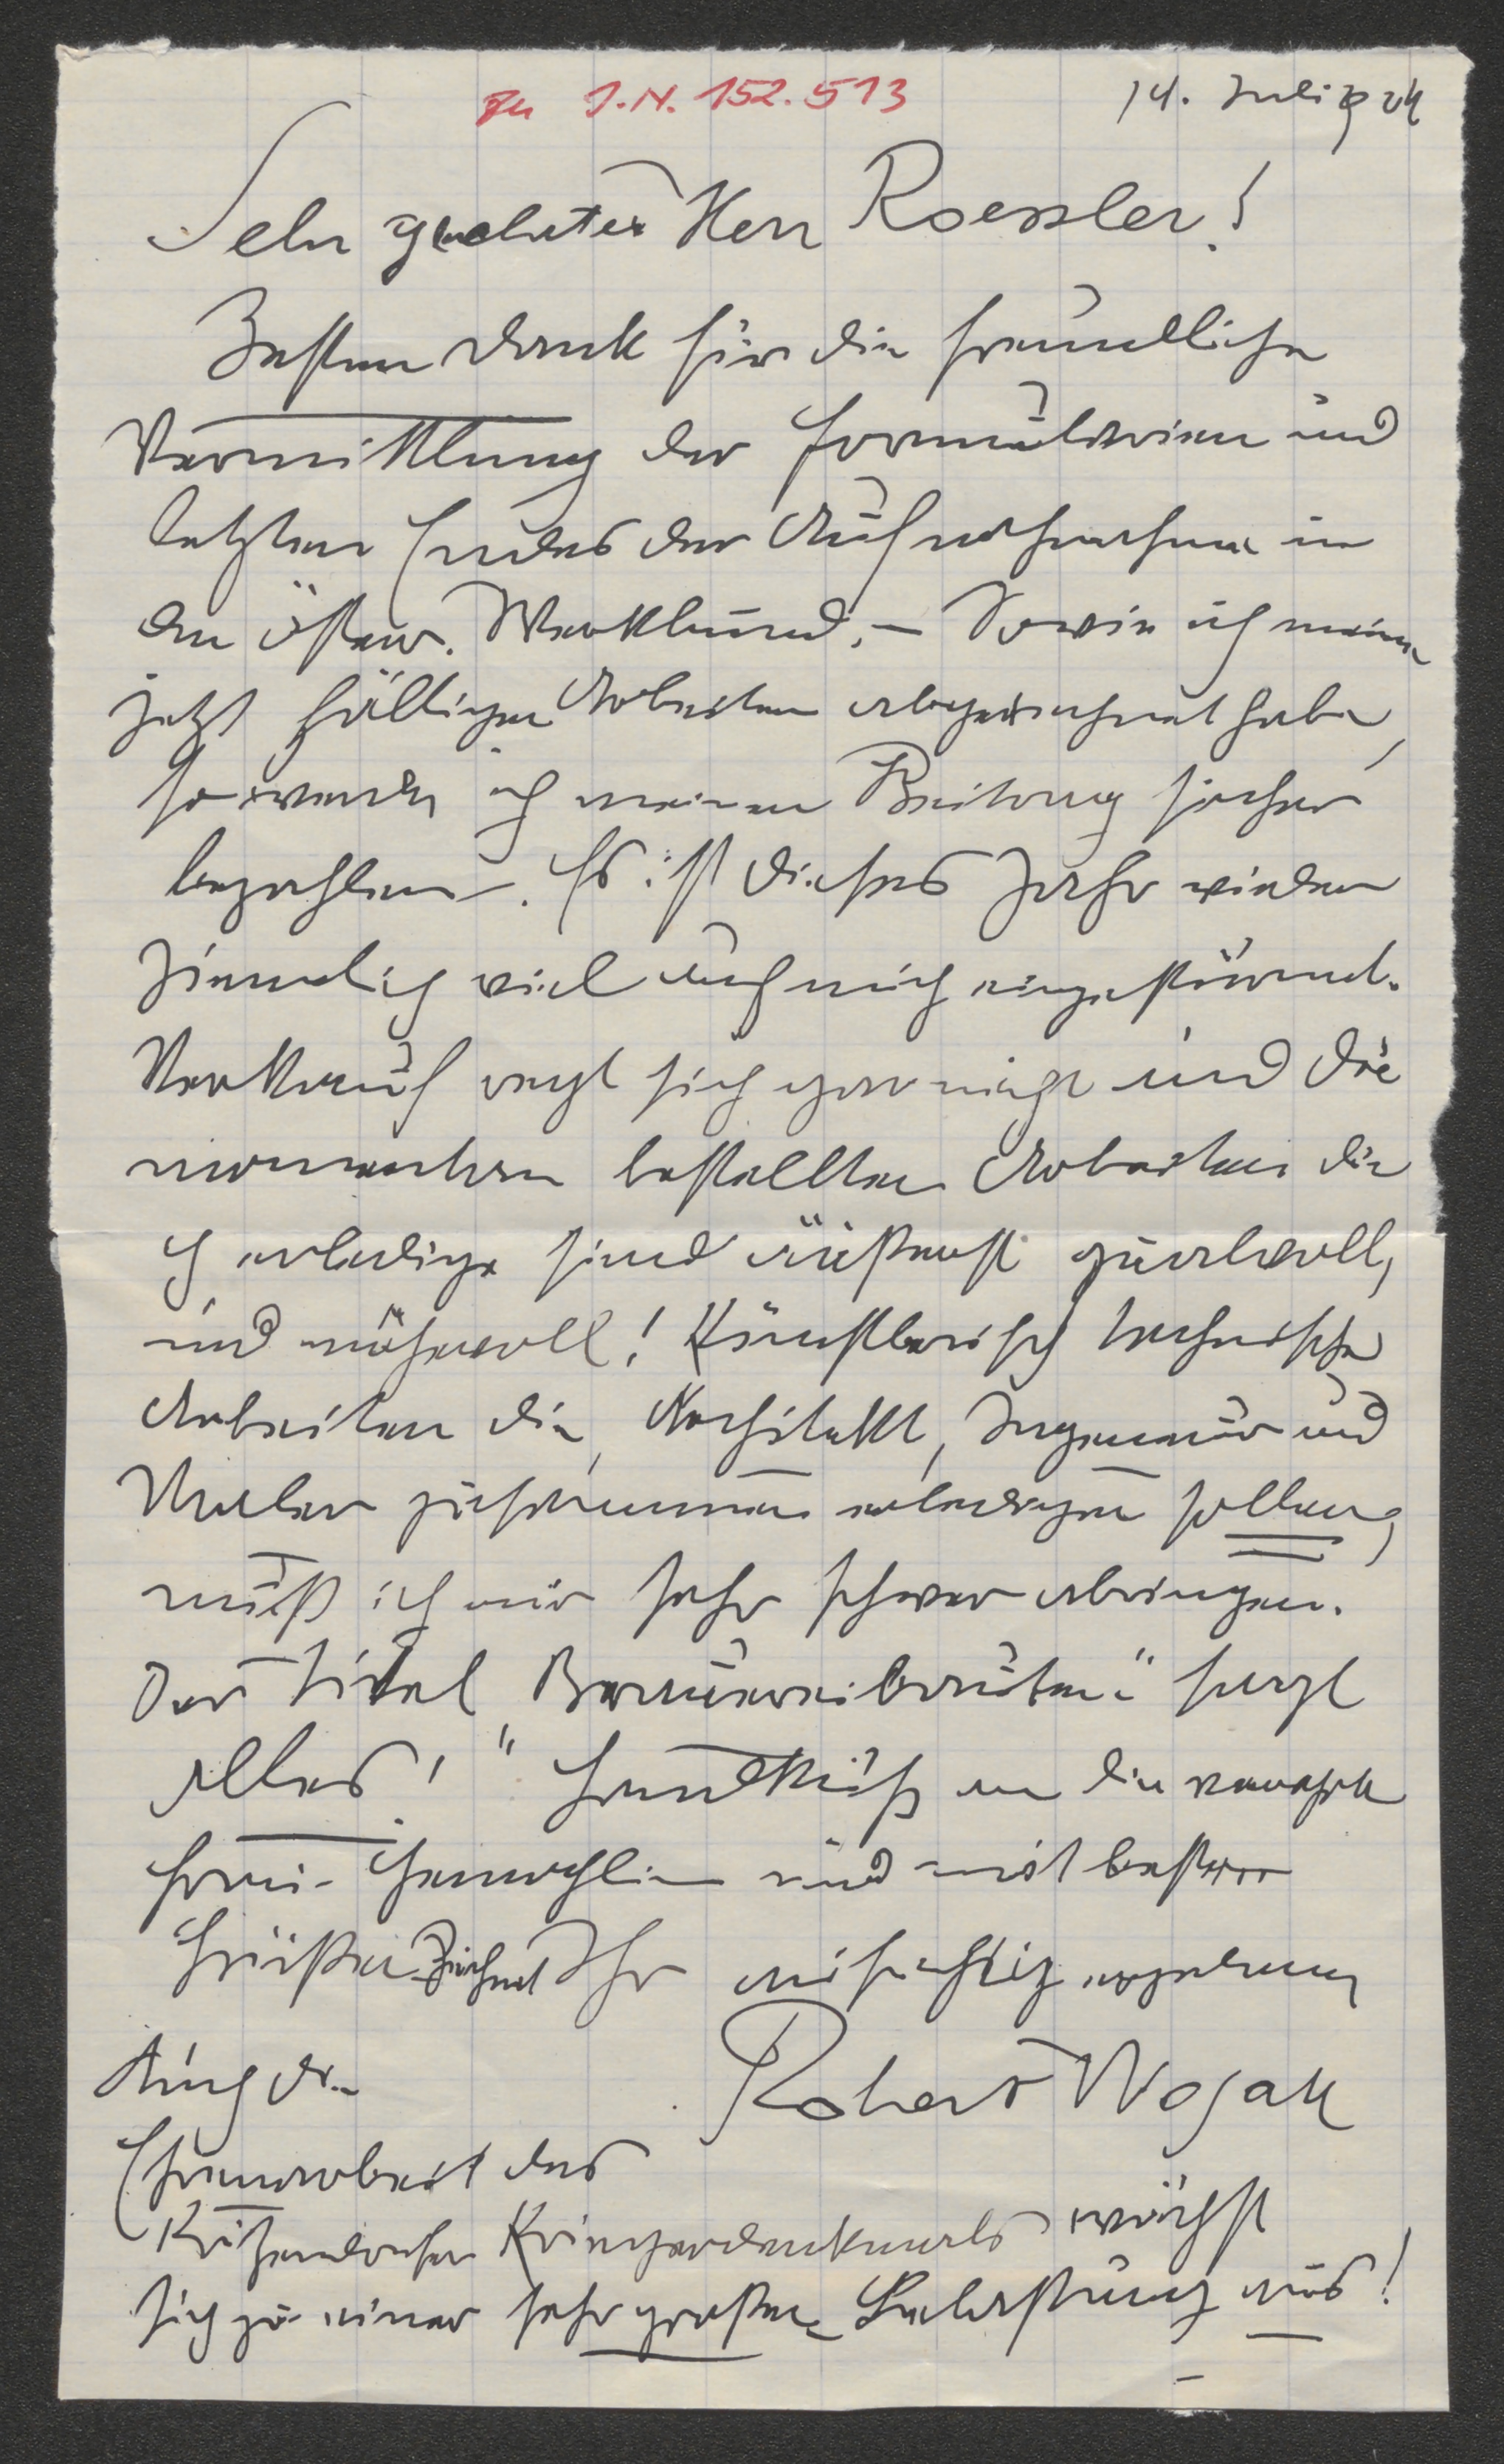 zu I.N. 152.513
14. Juli 1924
Sehr geehrter Herr Roessler!
Besten Dank für die freundliche
Vermittlung der Formularien und
letzten Endes der Aufnahme in
den österr. Werkbund. – Sowie ich meine
jetzt fälligen Arbeiten abgerechnet habe,
so werde ich meinen Beitrag sicher
bezahlen. Es ist dieses Jahr wieder
ziemlich viel auf mich eingestürmt.
Verkauf regt sich gar nicht und die
momentan bestellten Arbeiten die
ich erledige sind äußerst qualvoll,
und mühevoll! Künstlerisch technische
Arbeiten die, Architekt, Ingenieur und
Maler zusammen erledigen sollen,
muß ich mir sehr schwer abringen.
Der Titel sagt
alles! Handkuß an die verehrte
Frau Gemahlin und mit besten
Grüßen zeichnet Ihr aufrichtig ergebener
Robert
Auch die
Ehrenarbeit des
Kritzendorfer Kriegerdenkmals wächst
sich zu einer sehr großen Belastung aus!